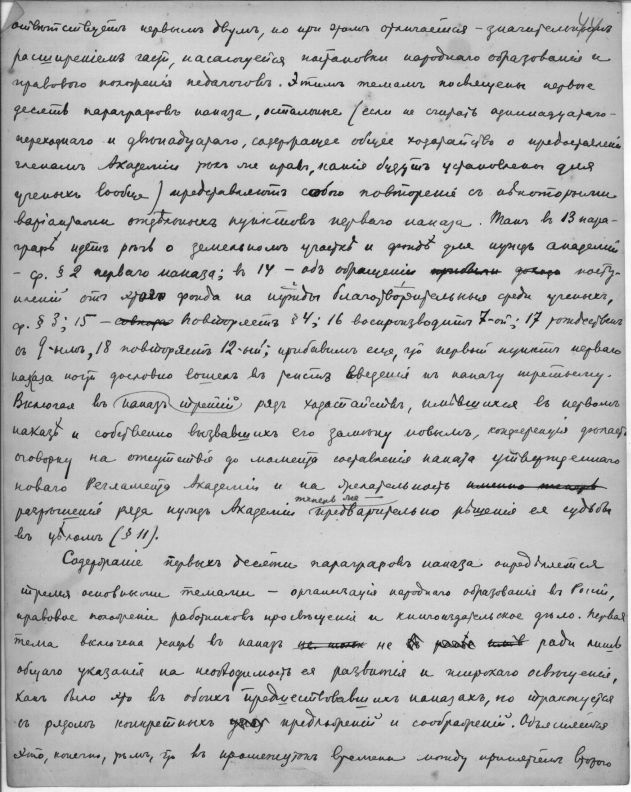 отвѣтствуетъ первымъ двумъ, но при этомъ отличается – значительнымъ
расширеніемъ части, касающейся постановки народнаго образованія и
правового положенія педагоговъ. Этимъ темамъ посвящены первые
десять параграфовъ наказа, остальные (если не считать одиннадцатаго –
переходнаго и двѣнадцатаго, содержащее общее ходатайство о предоставленіи
членамъ Академіи тѣхъ же правъ, какія будутъ установлены для
ученыхъ вообще) представляютъ собою повтореніе съ нѣкоторыми
варіантами отдѣльныхъ пунктовъ перваго наказа. Такъ въ 13 пара-
графѣ идетъ рѣчь о земельномъ участкѣ и фондѣ для нуждъ академіи
– ср. § 2 перваго наказа; въ 14 – объ обращеніи посту-
пленій отъ этого фонда на нужды благотворительныя среди ученыхъ,
ср. § 3; 15 – повторяетъ § 4; 16 воспроизводитъ 7-ой; 17 тождественъ
съ 9-ымъ, 18 повторяетъ 12-ый; прибавимъ еще, что первый пунктъ перваго
наказа почти дословно вошелъ въ текстъ введенія къ наказу третьему.
Включая въ наказъ третій рядъ ходатайствъ, имѣвшихся въ первомъ
наказѣ и собственно вызвавшихъ его замѣну новымъ, конференція сдѣлала
оговорку на отсутствіе до момента составленія наказа утвержденнаго
новаго Регламента Академіи и на желательность именно теперь
теперь же
разрѣшенія ряда нуждъ Академіи предварительно рѣшенія ея судьбы
въ цѣломъ (§ 11).
Содержаніе первыхъ десяти параграфовъ наказа опредѣляется
тремя основными темами – организація народнаго образованія въ Росіи,
правовое положеніе работниковъ просвѣщенія и книгоиздательское дѣло. Первая
тема включена теперь въ наказъ не ради лишь
общаго указанія на необходимость ея развитія и широкаго освѣщенія,
какъ было это въ обоихъ предшествовавшихъ наказахъ, но трактуется
съ рядомъ конкретныхъ предложеній и соображеній. Объясняется
это, конечно, тѣмъ, что въ промежутокъ времени между принятіемъ второго